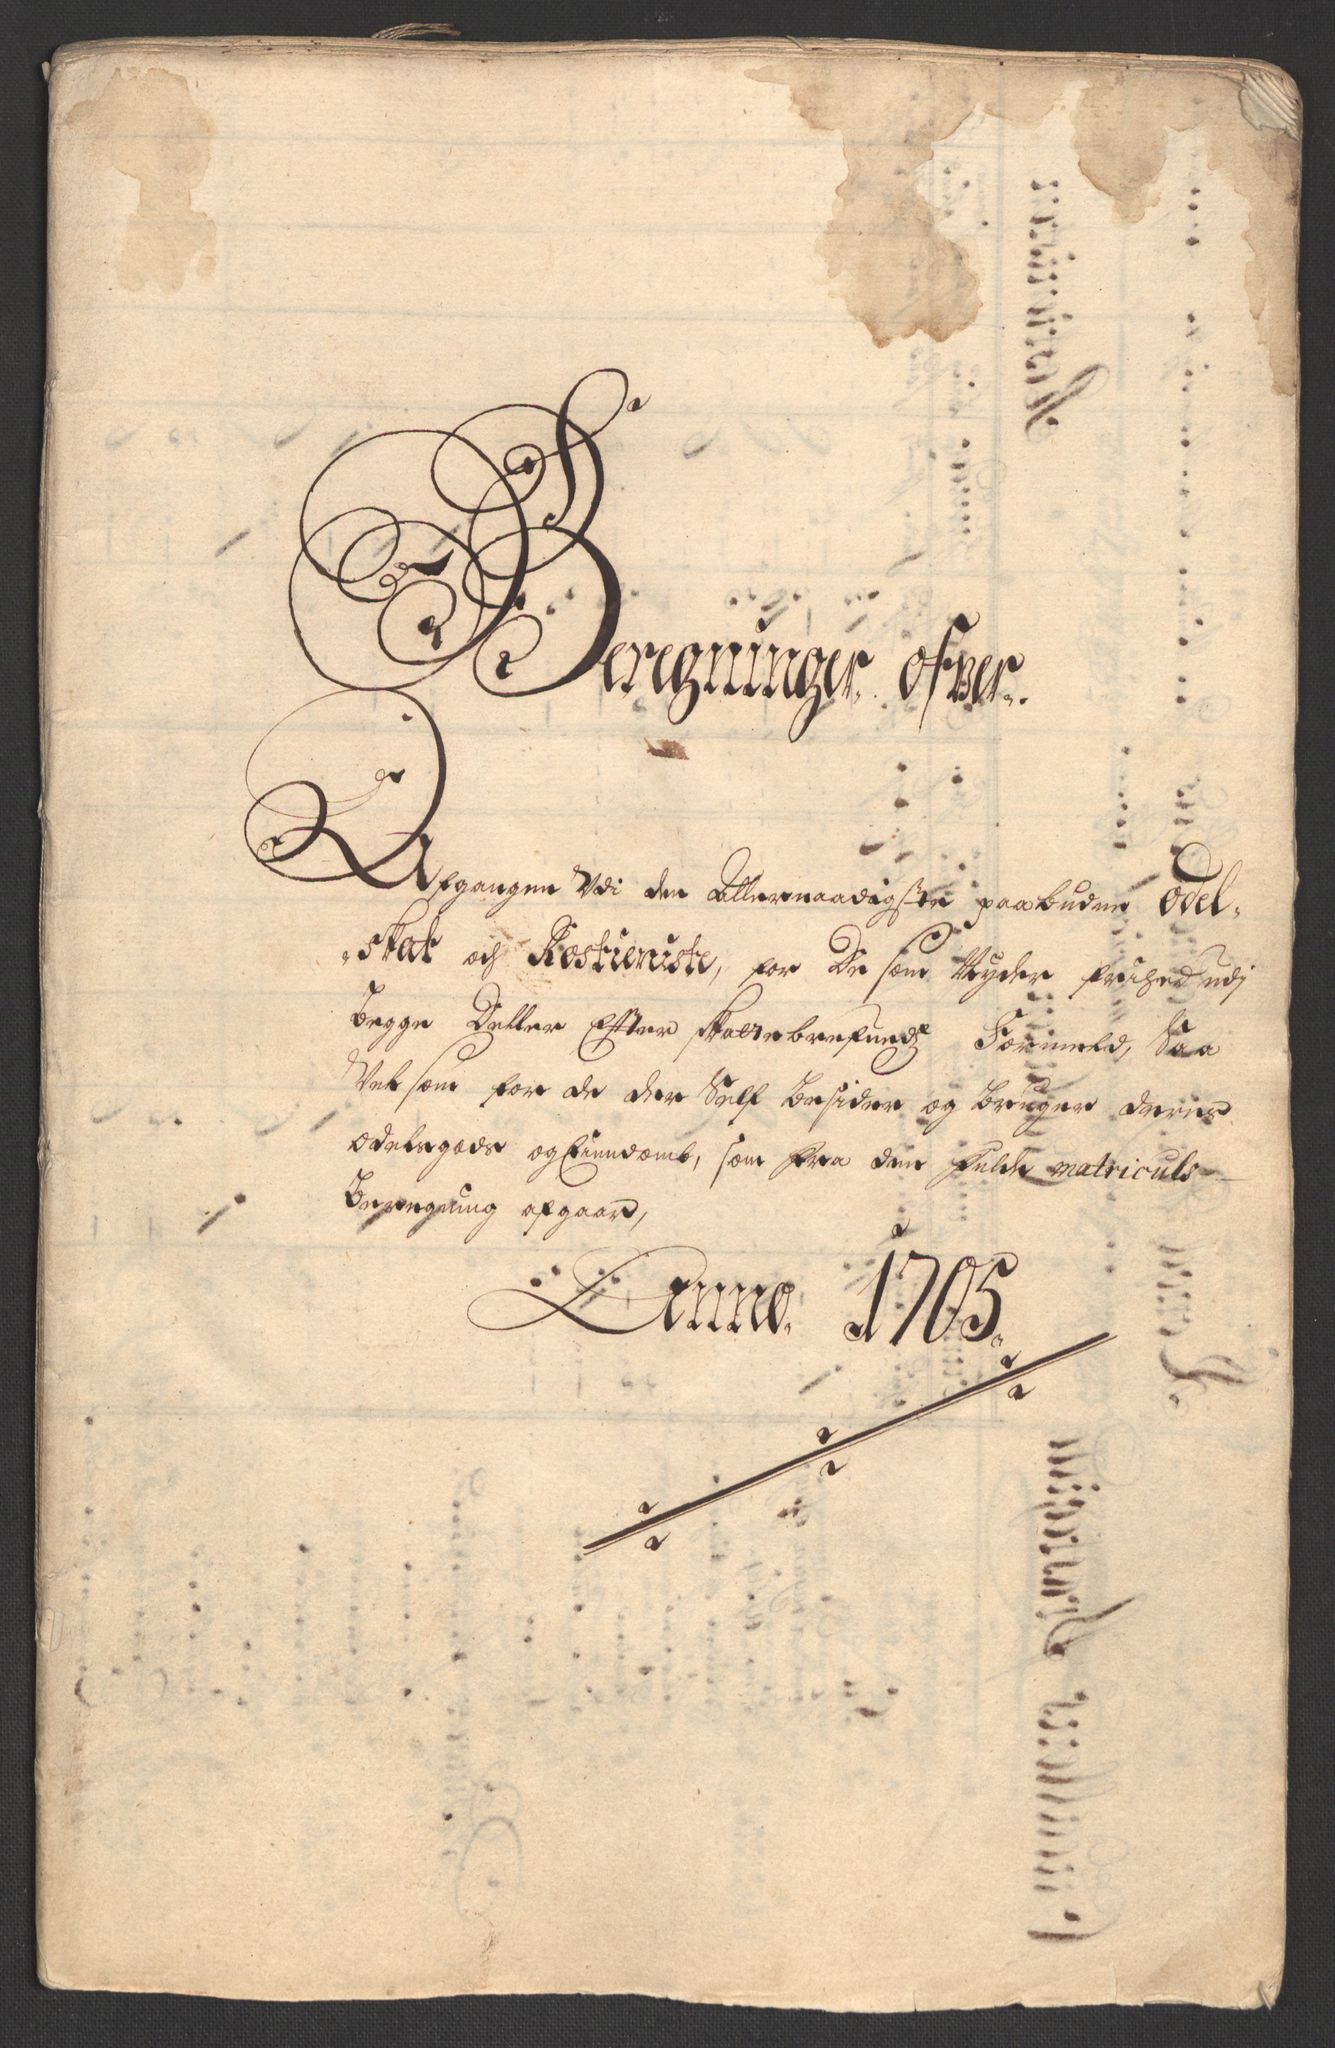 Beregninger ofver
Afgangen Vdi den Allernaadigste paabudne Odel-
skat och Rostieniste, for De som Nyder frihed udj
begge Deller Efter skattebrefvends Formeld, Saa
Vel som for de der Self besider og bruger deres
odelsgods og Eiendomb, som fra den fulde matriculs
beregning afgaar,
Anno 1705.